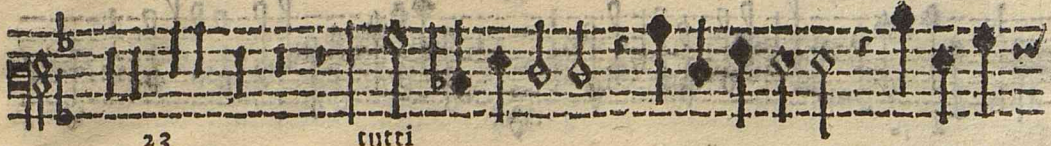 23 tutti